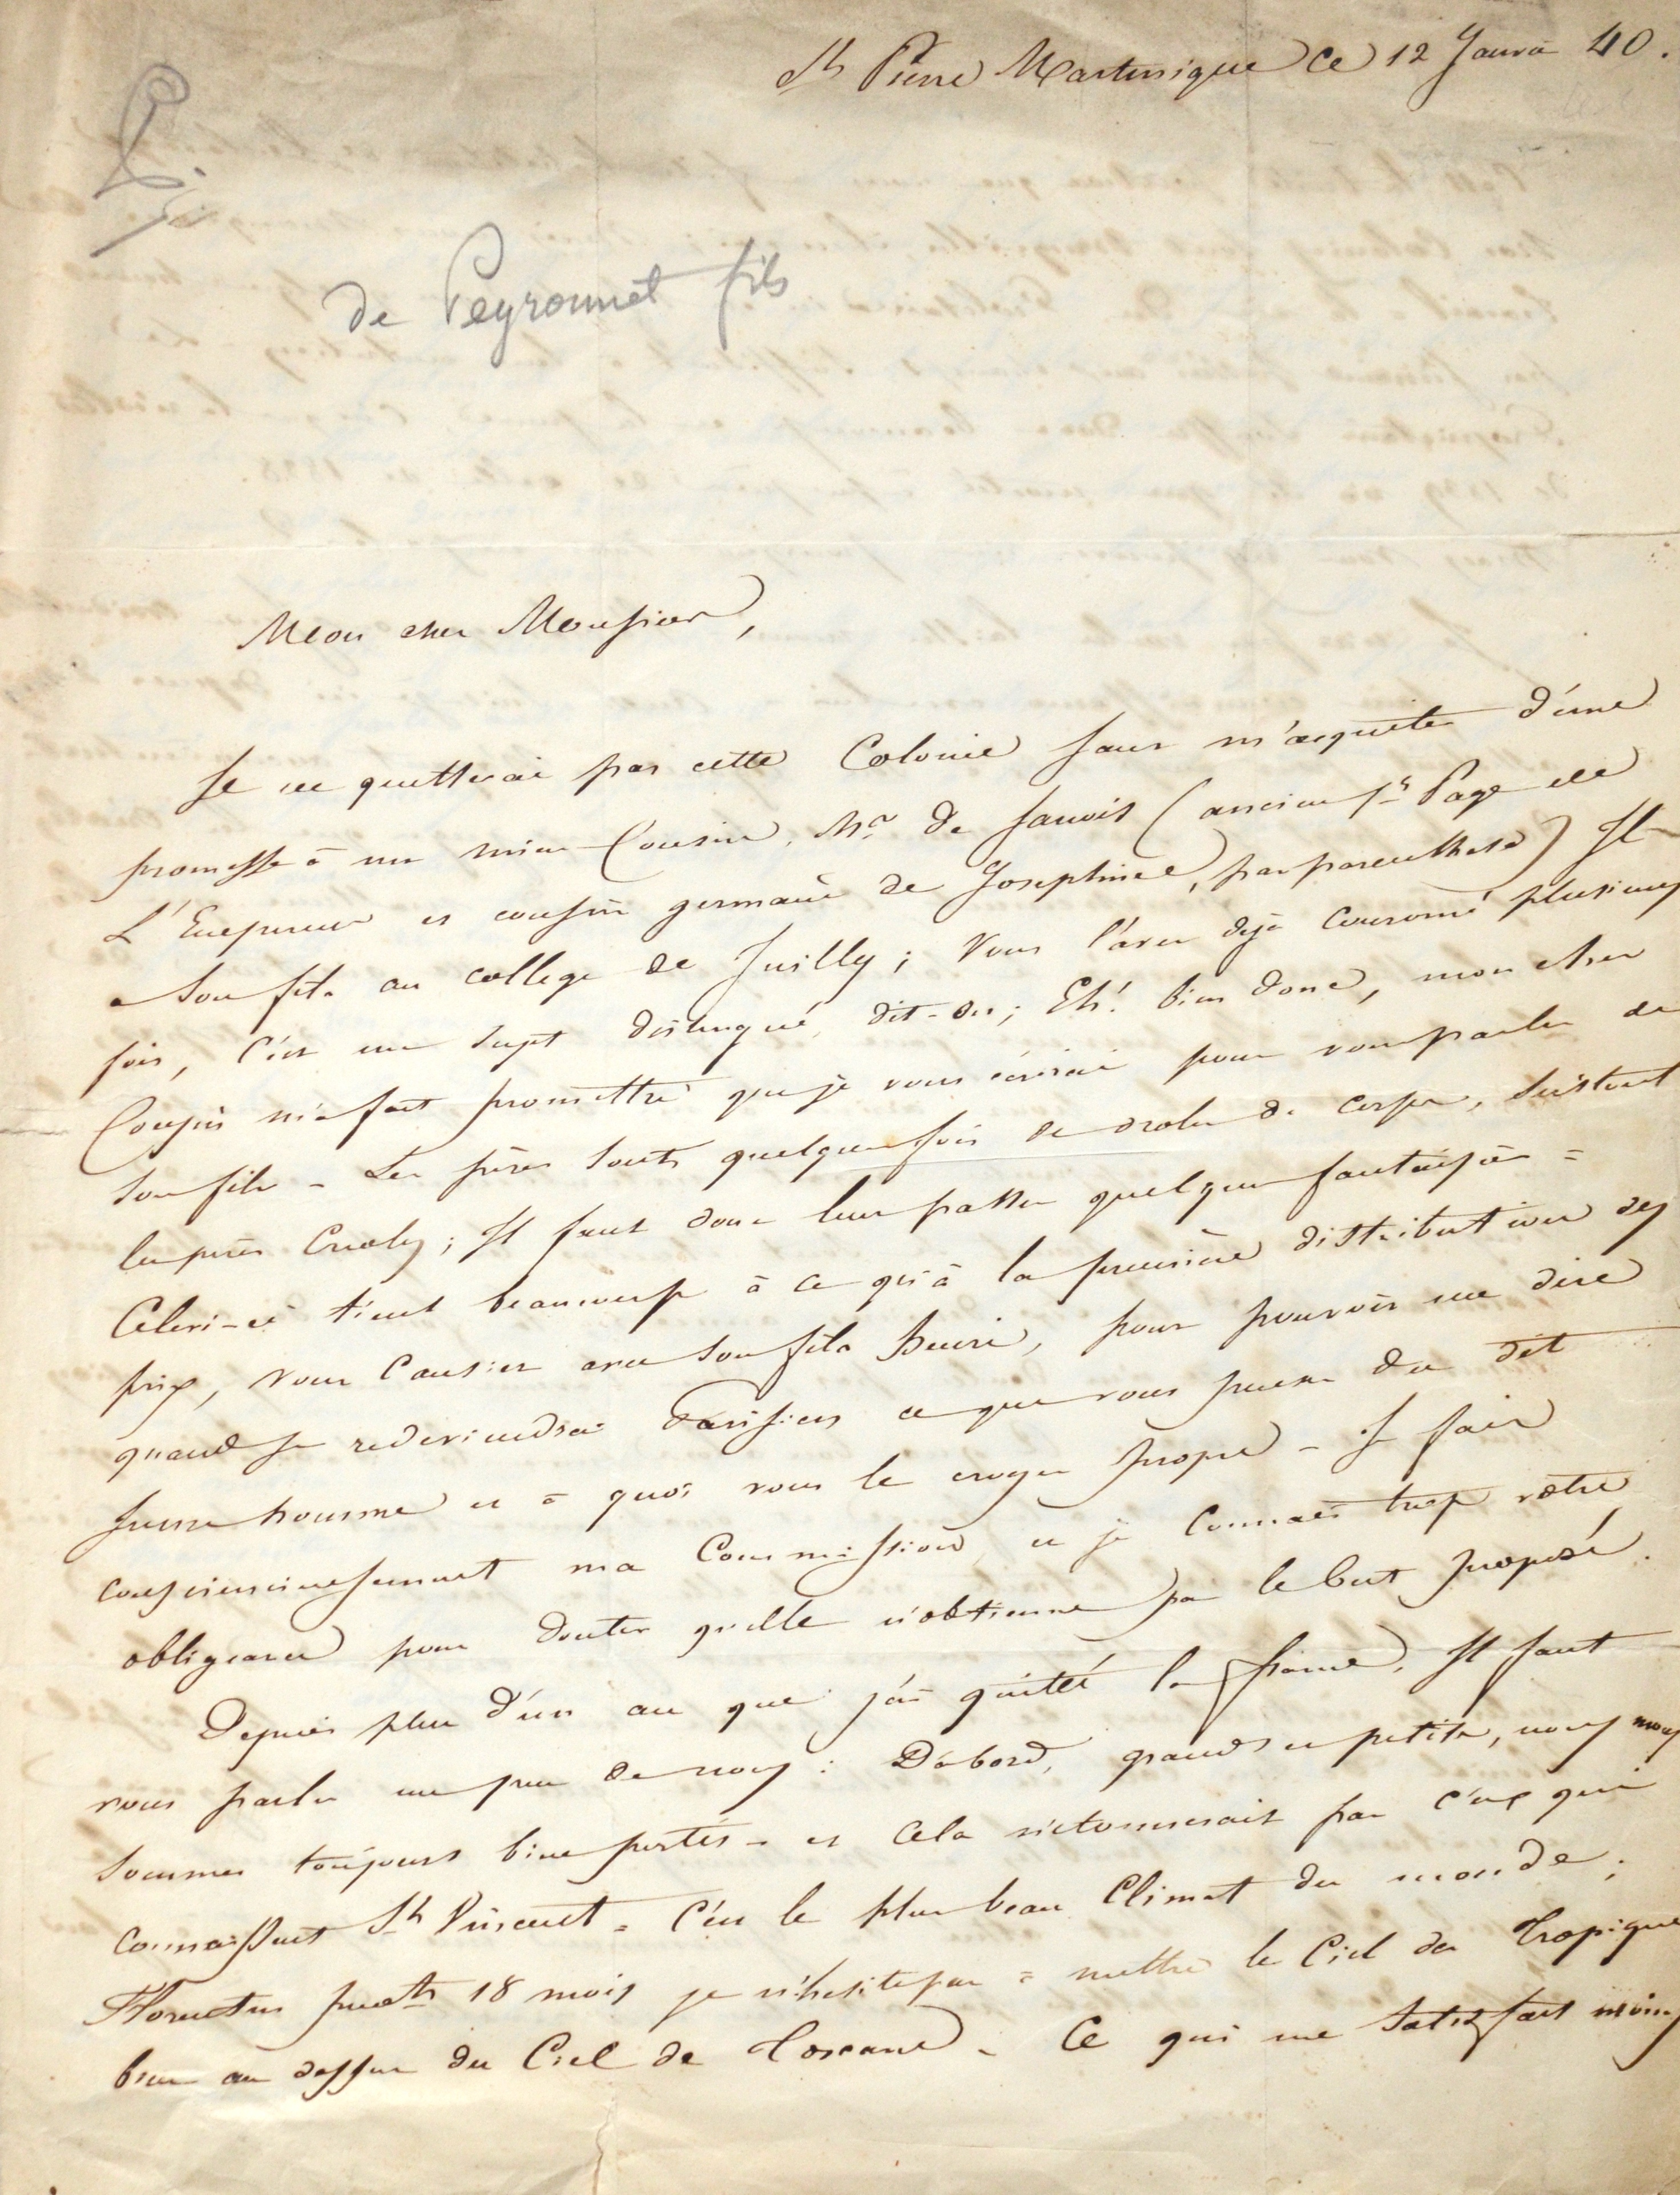 St Pierre Martinique Ce 12 Janvr 40.
de Peyronnet fils
Mon cher Monsieur,
Je ne quitterai pas cette Colonie sans m'acquiter d'une
promesse à un mien Cousin. Mr de Sanois (ancien 1er Page de
L'Empereur et cousin germain de Josephine, par parenthese) Il
a son fils au college de Juilly; Vous l'avez déjà couronné plusieurs
fois, C'est un sujet distingué, dit-on; Eh! bien donc, mon cher
Cousin m'a fait promettre que je vous écrirai pour vous parler de
son fils - Les pères sont quelquefois de droles de corps, surtout
les pères Creoles; Il faut donc leur passer quelques fantaisies =
Celui-ci tient beaucoup à ce qu'à la première distribution des
prix, vous causiez avec son fils Henri, pour pouvoir me dire
quand je redeviendrai Parisien ce que vous pensez du dit
jeune homme et à quoi vous le croyez propre - Je fais
consciencieusement ma Commission, et je Connais trop votre
obligeance pour douter qu'elle n'obtienne pas le but proposé.
Depuis plus d'un an que j'ai quitté la france, Il faut
vous parler un peu de nous : D'abord, grands et petits, nous nous
sommes toujours bien portés - et Cela n'etonnerait pas ceux qui
connaissent St Vincent = C'est le plus beau Climat du monde;
pendt 18 mois je n'hesite pas à mettre le Ciel des Tropiques
bien au dessus du Ciel de Toscane - Ce qui me Satisfait moins